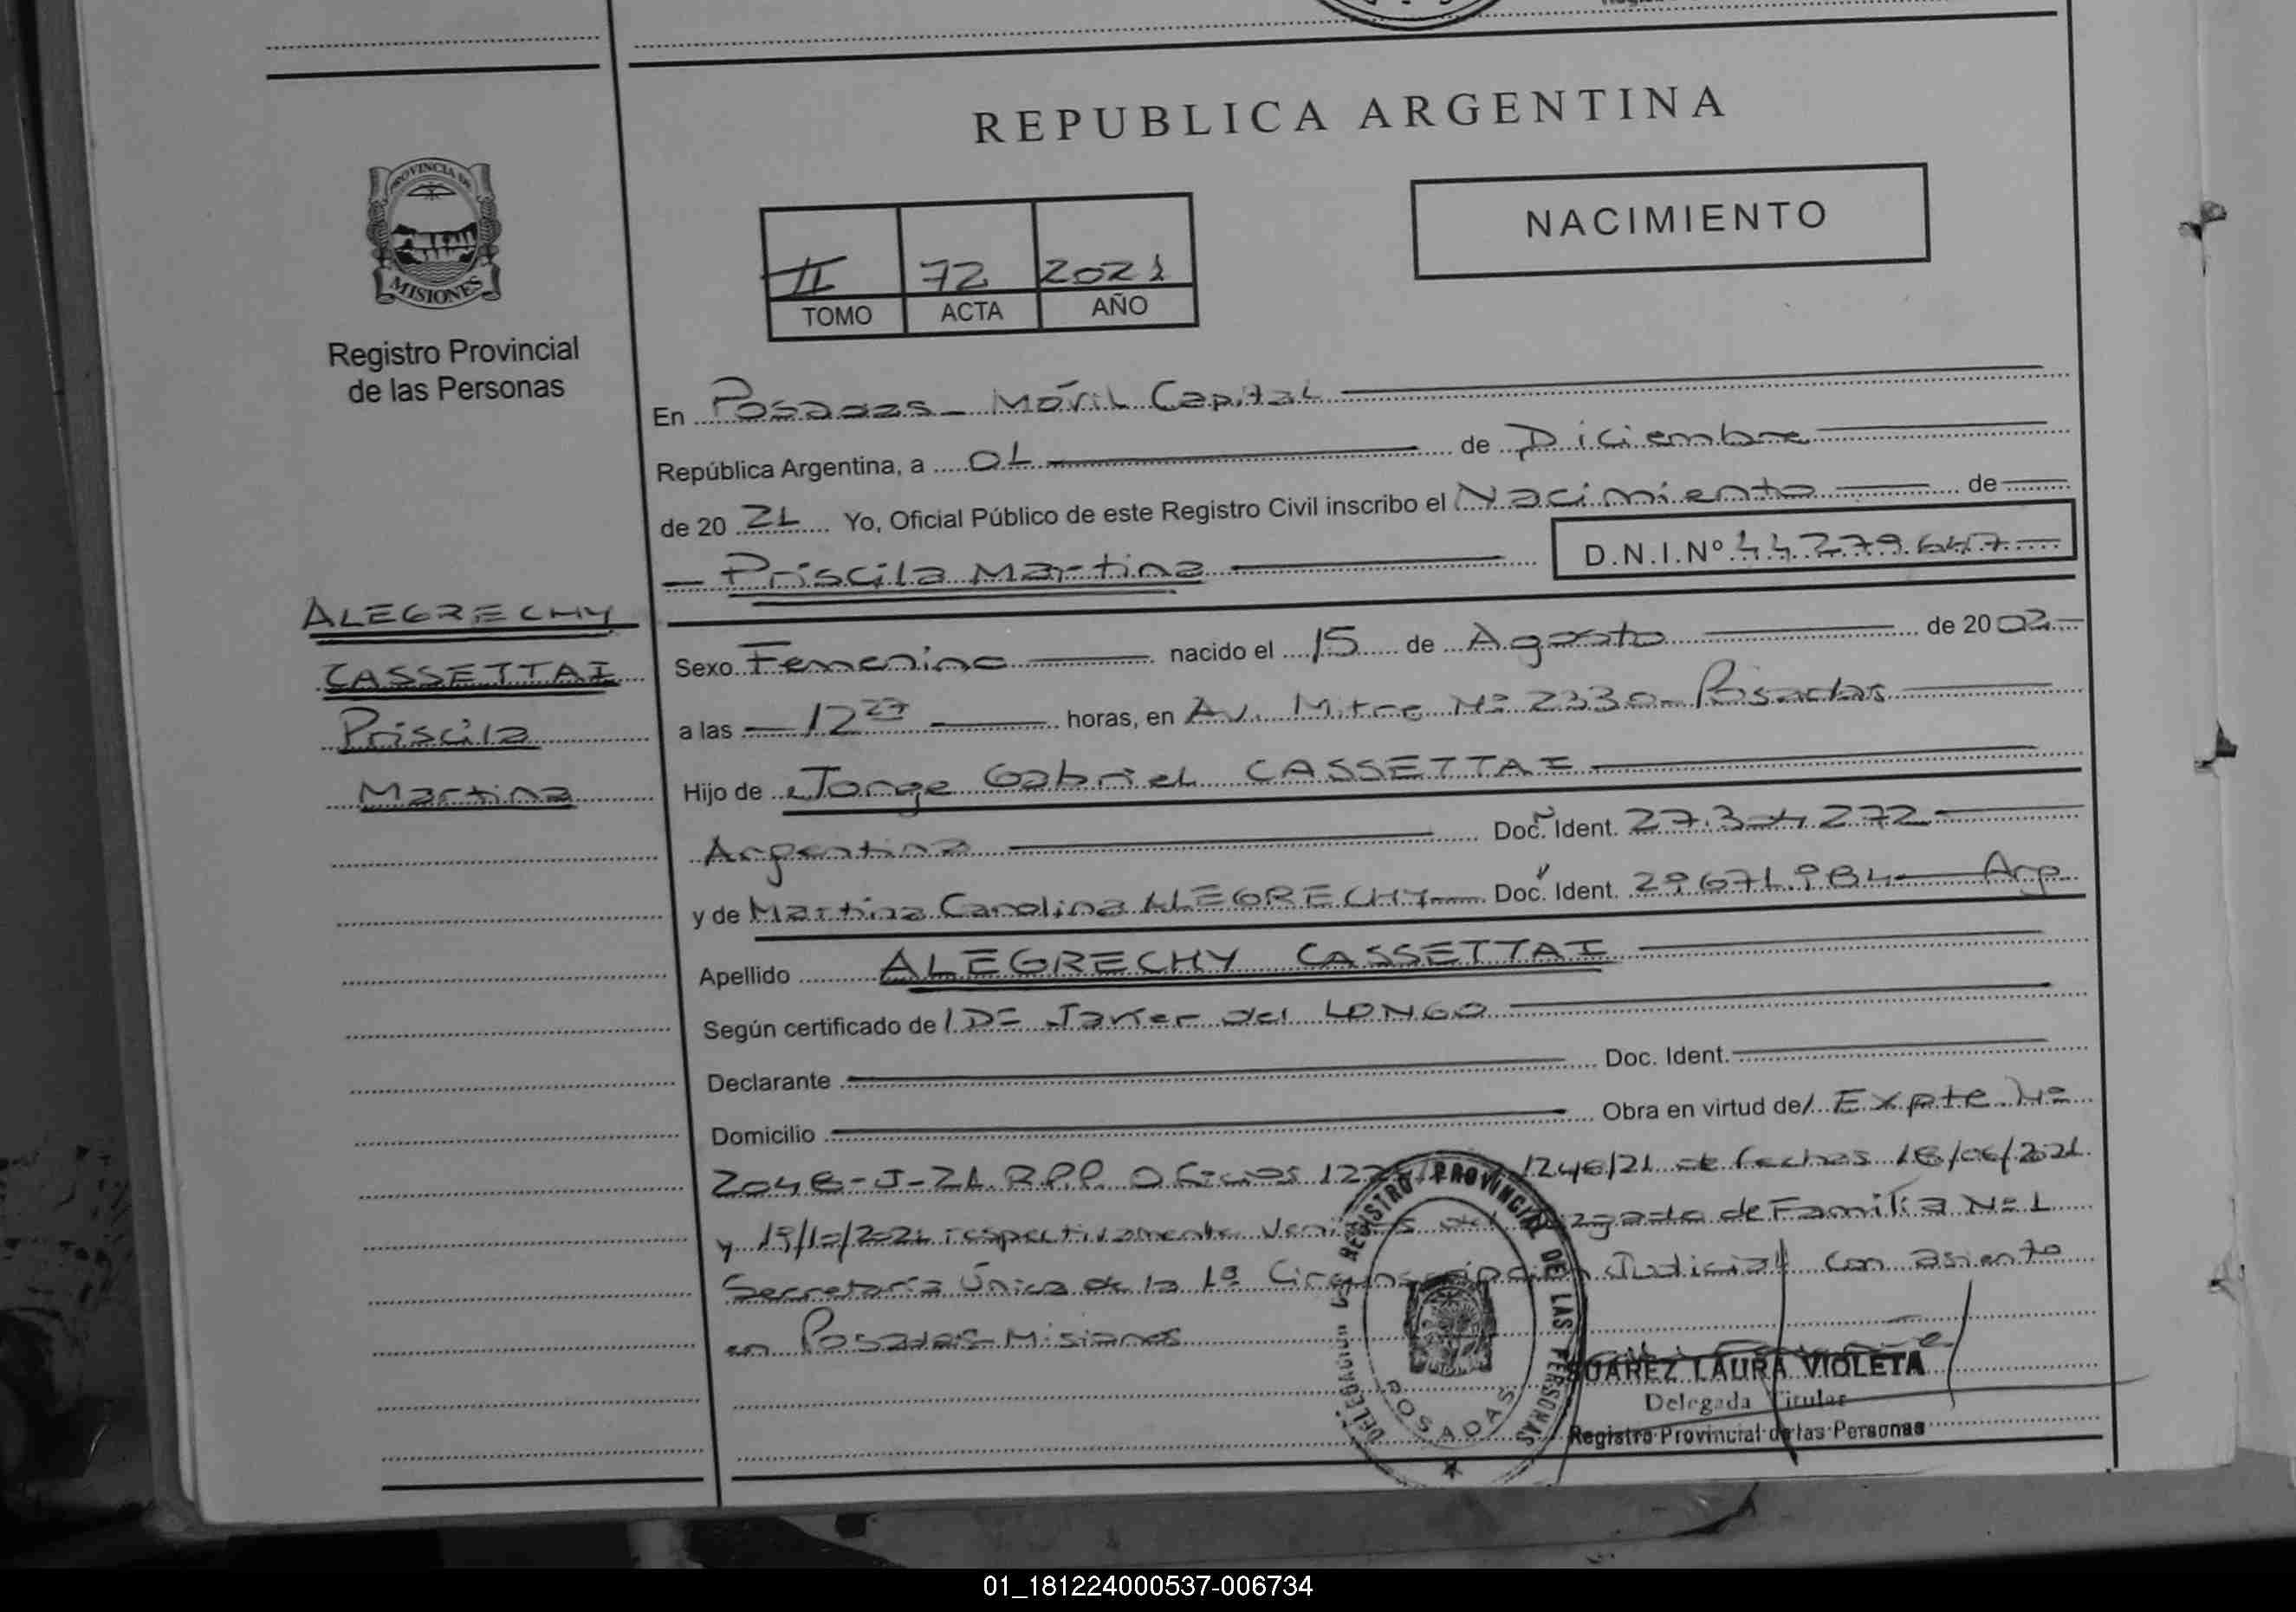 REPUBLICA ARGENTINA
PROVINCIA DE
MISIONES
Registro Provincial
de las Personas
NACIMIENTO
II 72 2021
TOMO ACTA AÑO
En Posadas - Móvil Capital
República Argentina, a 01 de Diciembre
de 20 21 Yo, Oficial Público de este Registro Civil inscribo el Nacimiento de
Priscila Martina D.N.I.Nº 44279.647
ALEGRECHY
CASSETTAI
Priscila
Martina
Sexo Femenino nacido el 15 de Agosto de 20 02
a las 12 27 horas, en Av. Mitre Nº 2330 - Posadas
Hijo de Jorge Gabriel CASSETTAI
Argentina Doc. Ident. 272
y de Martina Carolina ALEGRECHY Doc. Ident. 29671.984 Arg
Apellido ALEGRECHY CASSETTAI
Según certificado de Javier del LONGO
Declarante Doc. Ident.
Domicilio Obra en virtud de Expte. Nº
R.P.P. Oficios 1246/21 de fechas
y respectivamente del de Familia Nº 1
Secretaría Única de la 1ª Circunscripción Judicial con asiento
en Posadas - Misiones
REGISTRO PROVINCIAL DE LAS PERSONAS
POSADAS
SUAREZ LAURA VIOLETA
Delegada Titular
Registro Provincial de las Personas
01_181224000537-006734